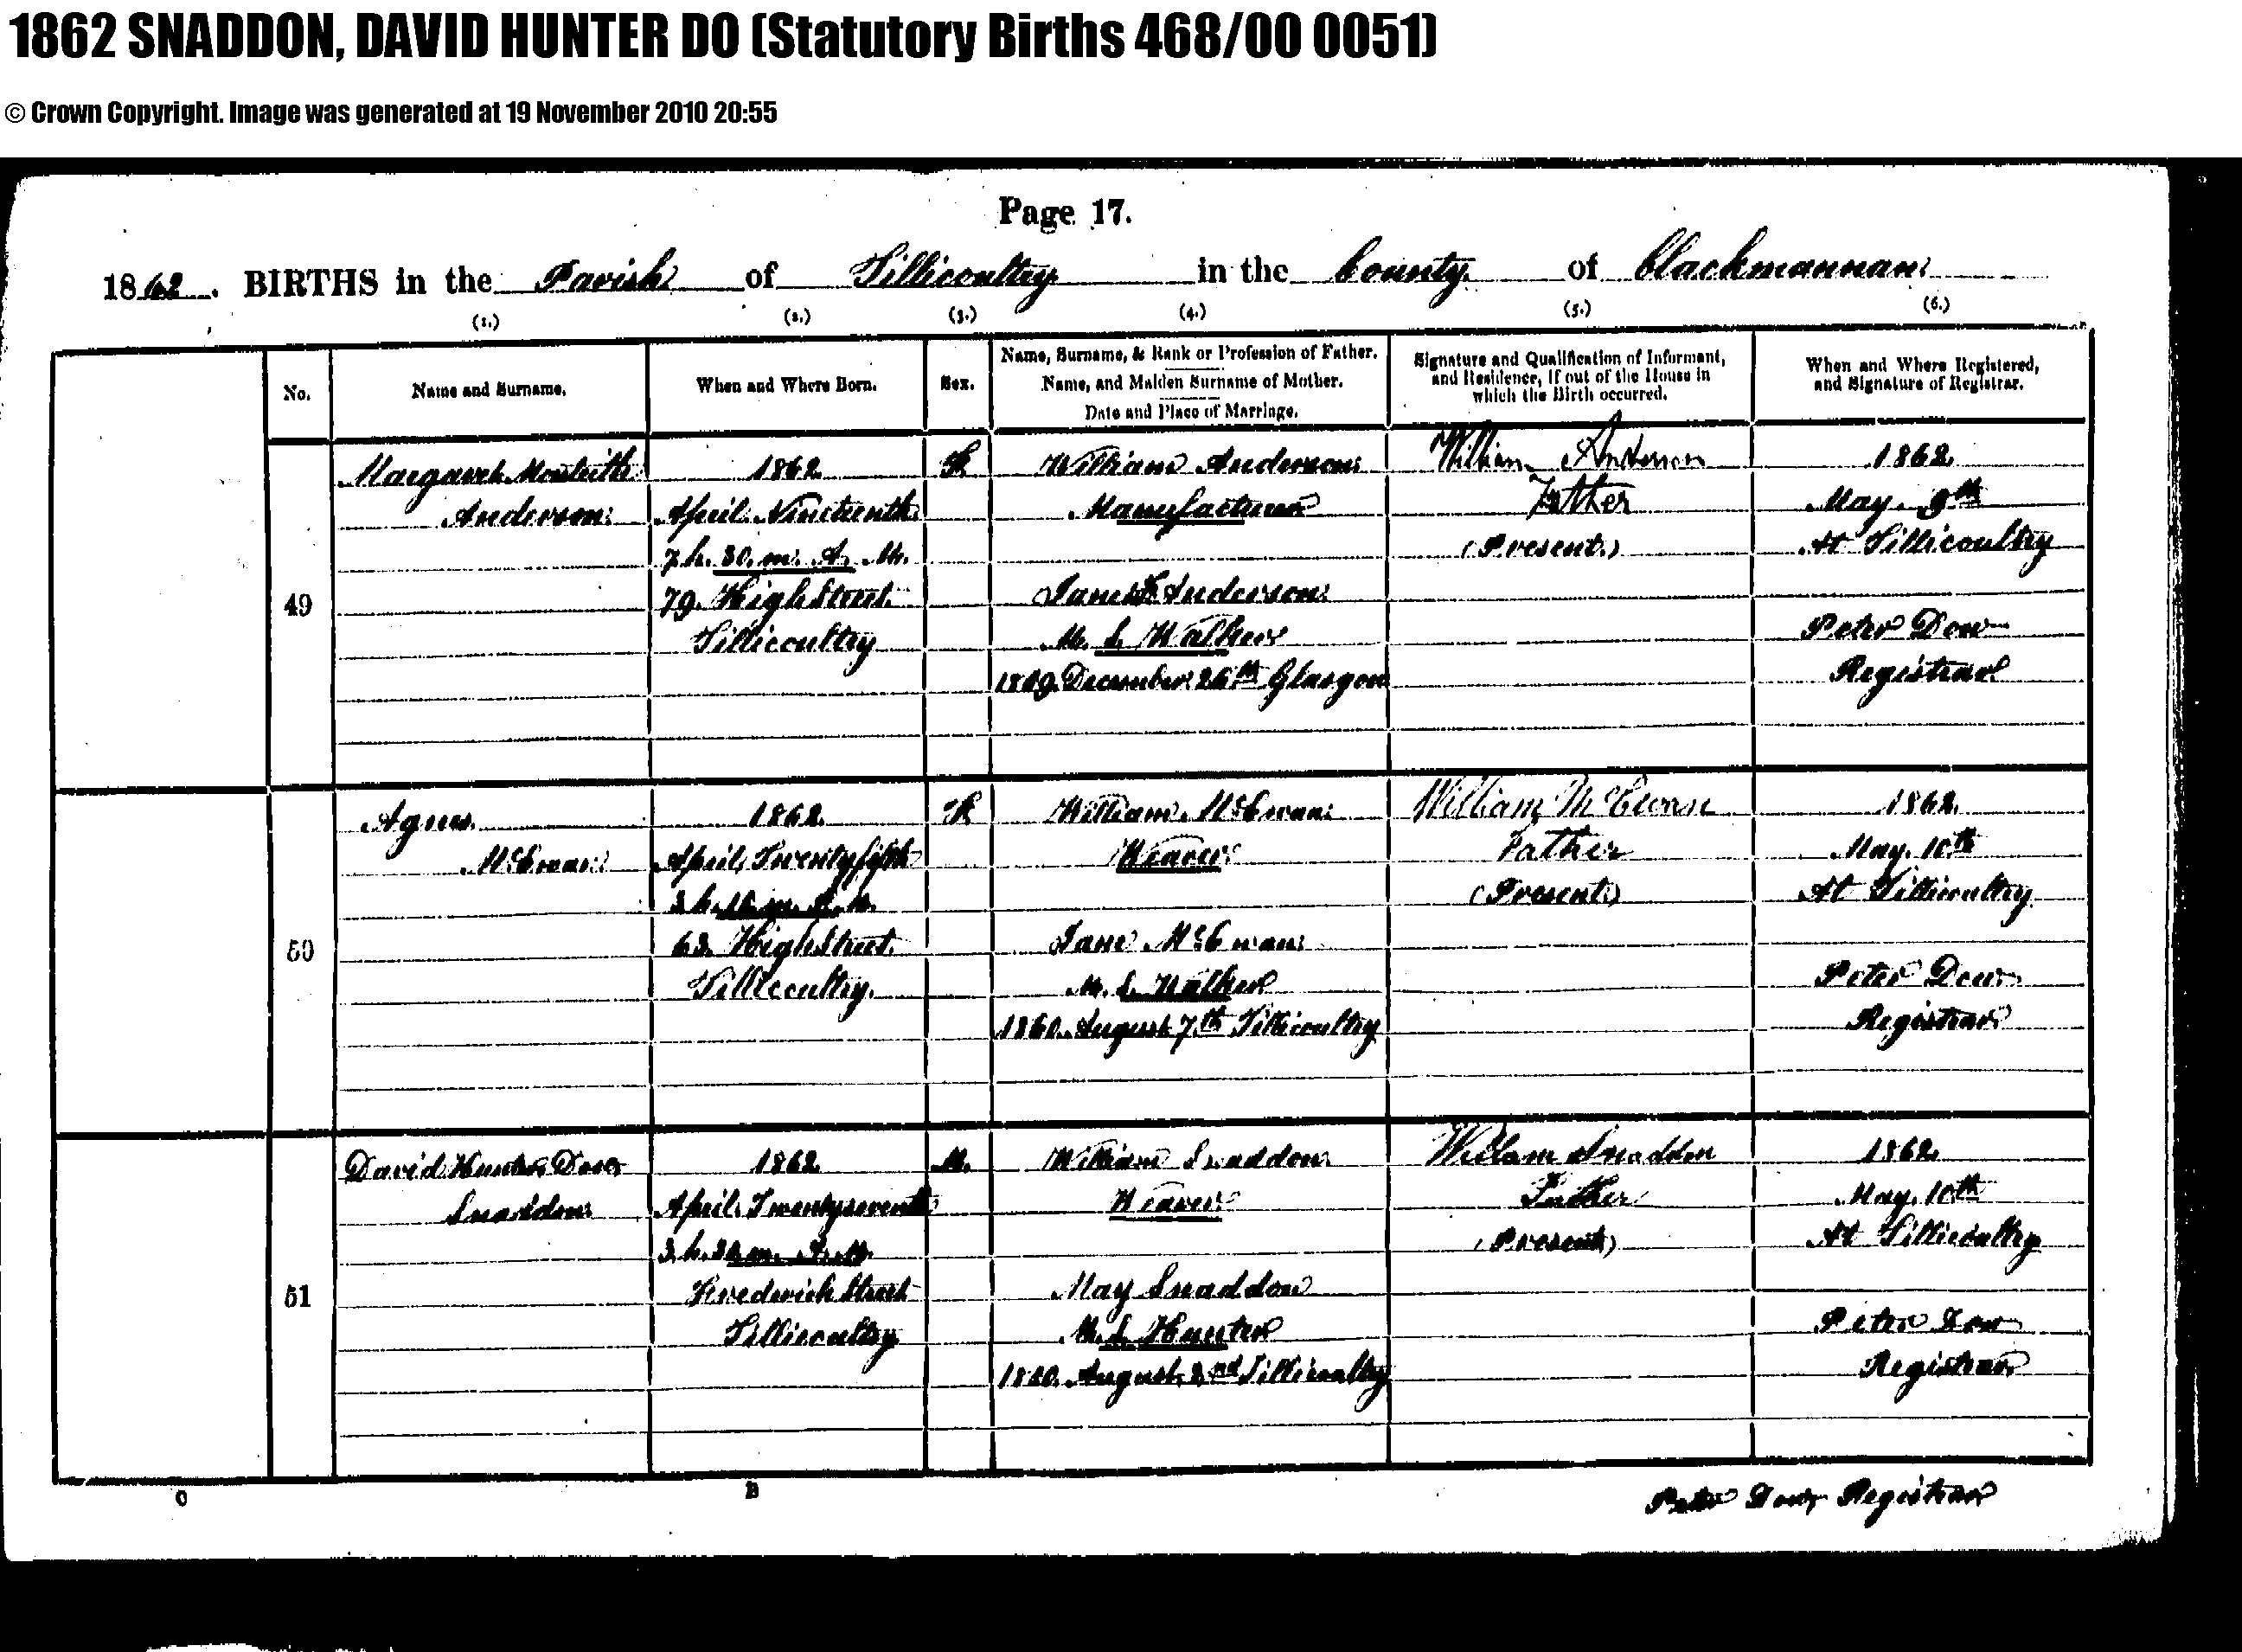 1862 SNADDON, DAVID HUNTER DO (Statutory Births 468/00 0051)
© Crown Copyright. Image was generated at 19 November 2010 20:55
Page 17.
1862. BIRTHS in the Parish of Tillicoultry in the County of Clackmannan
(1.) (2.) (3.) (4.) (5.) (6.)
No. Name and Surname. When and Where Born. Sex. Name, Surname, & Rank or Profession of Father. Name, and Maiden Surname of Mother. Date and Place of Marriage. Signature and Qualification of Informant, and Residence, if out of the House in which the Birth occurred. When and Where Registered, and Signature of Registrar.
49
Margaret Monteith
Anderson
1862
April Nineteenth
7 h. 30 m. A. M.
79 High Street
Tillicoultry
F
William Anderson
Manufacturer
Anderson
M. S. Walker
December 26th Glasgow
William Anderson
Father
(Present)
1862
May 9th
At Tillicoultry
Peter Dow
Registrar
50
Agnes
McEwan
1862
April Twentyfifth
3 h. m. M.
63 High Street
Tillicoultry
F
William McEwan
Weaver
Jane McEwan
M. S. Walker
1860 August 7th Tillicoultry
William McEwan
Father
(Present)
1862
May 10th
At Tillicoultry
Peter Dow
Registrar
51
David Hunter Dow
Snaddon
1862
April Twentyseventh
3 h. 30 m. M.
Frederick Street
Tillicoultry
M.
William Snaddon
Weaver
May Snaddon
M. S. Hunter
August 2nd Tillicoultry
William Snaddon
Father
(Present)
1862
May 10th
At Tillicoultry
Peter Dow
Registrar
C B
Peter Dow Registrar